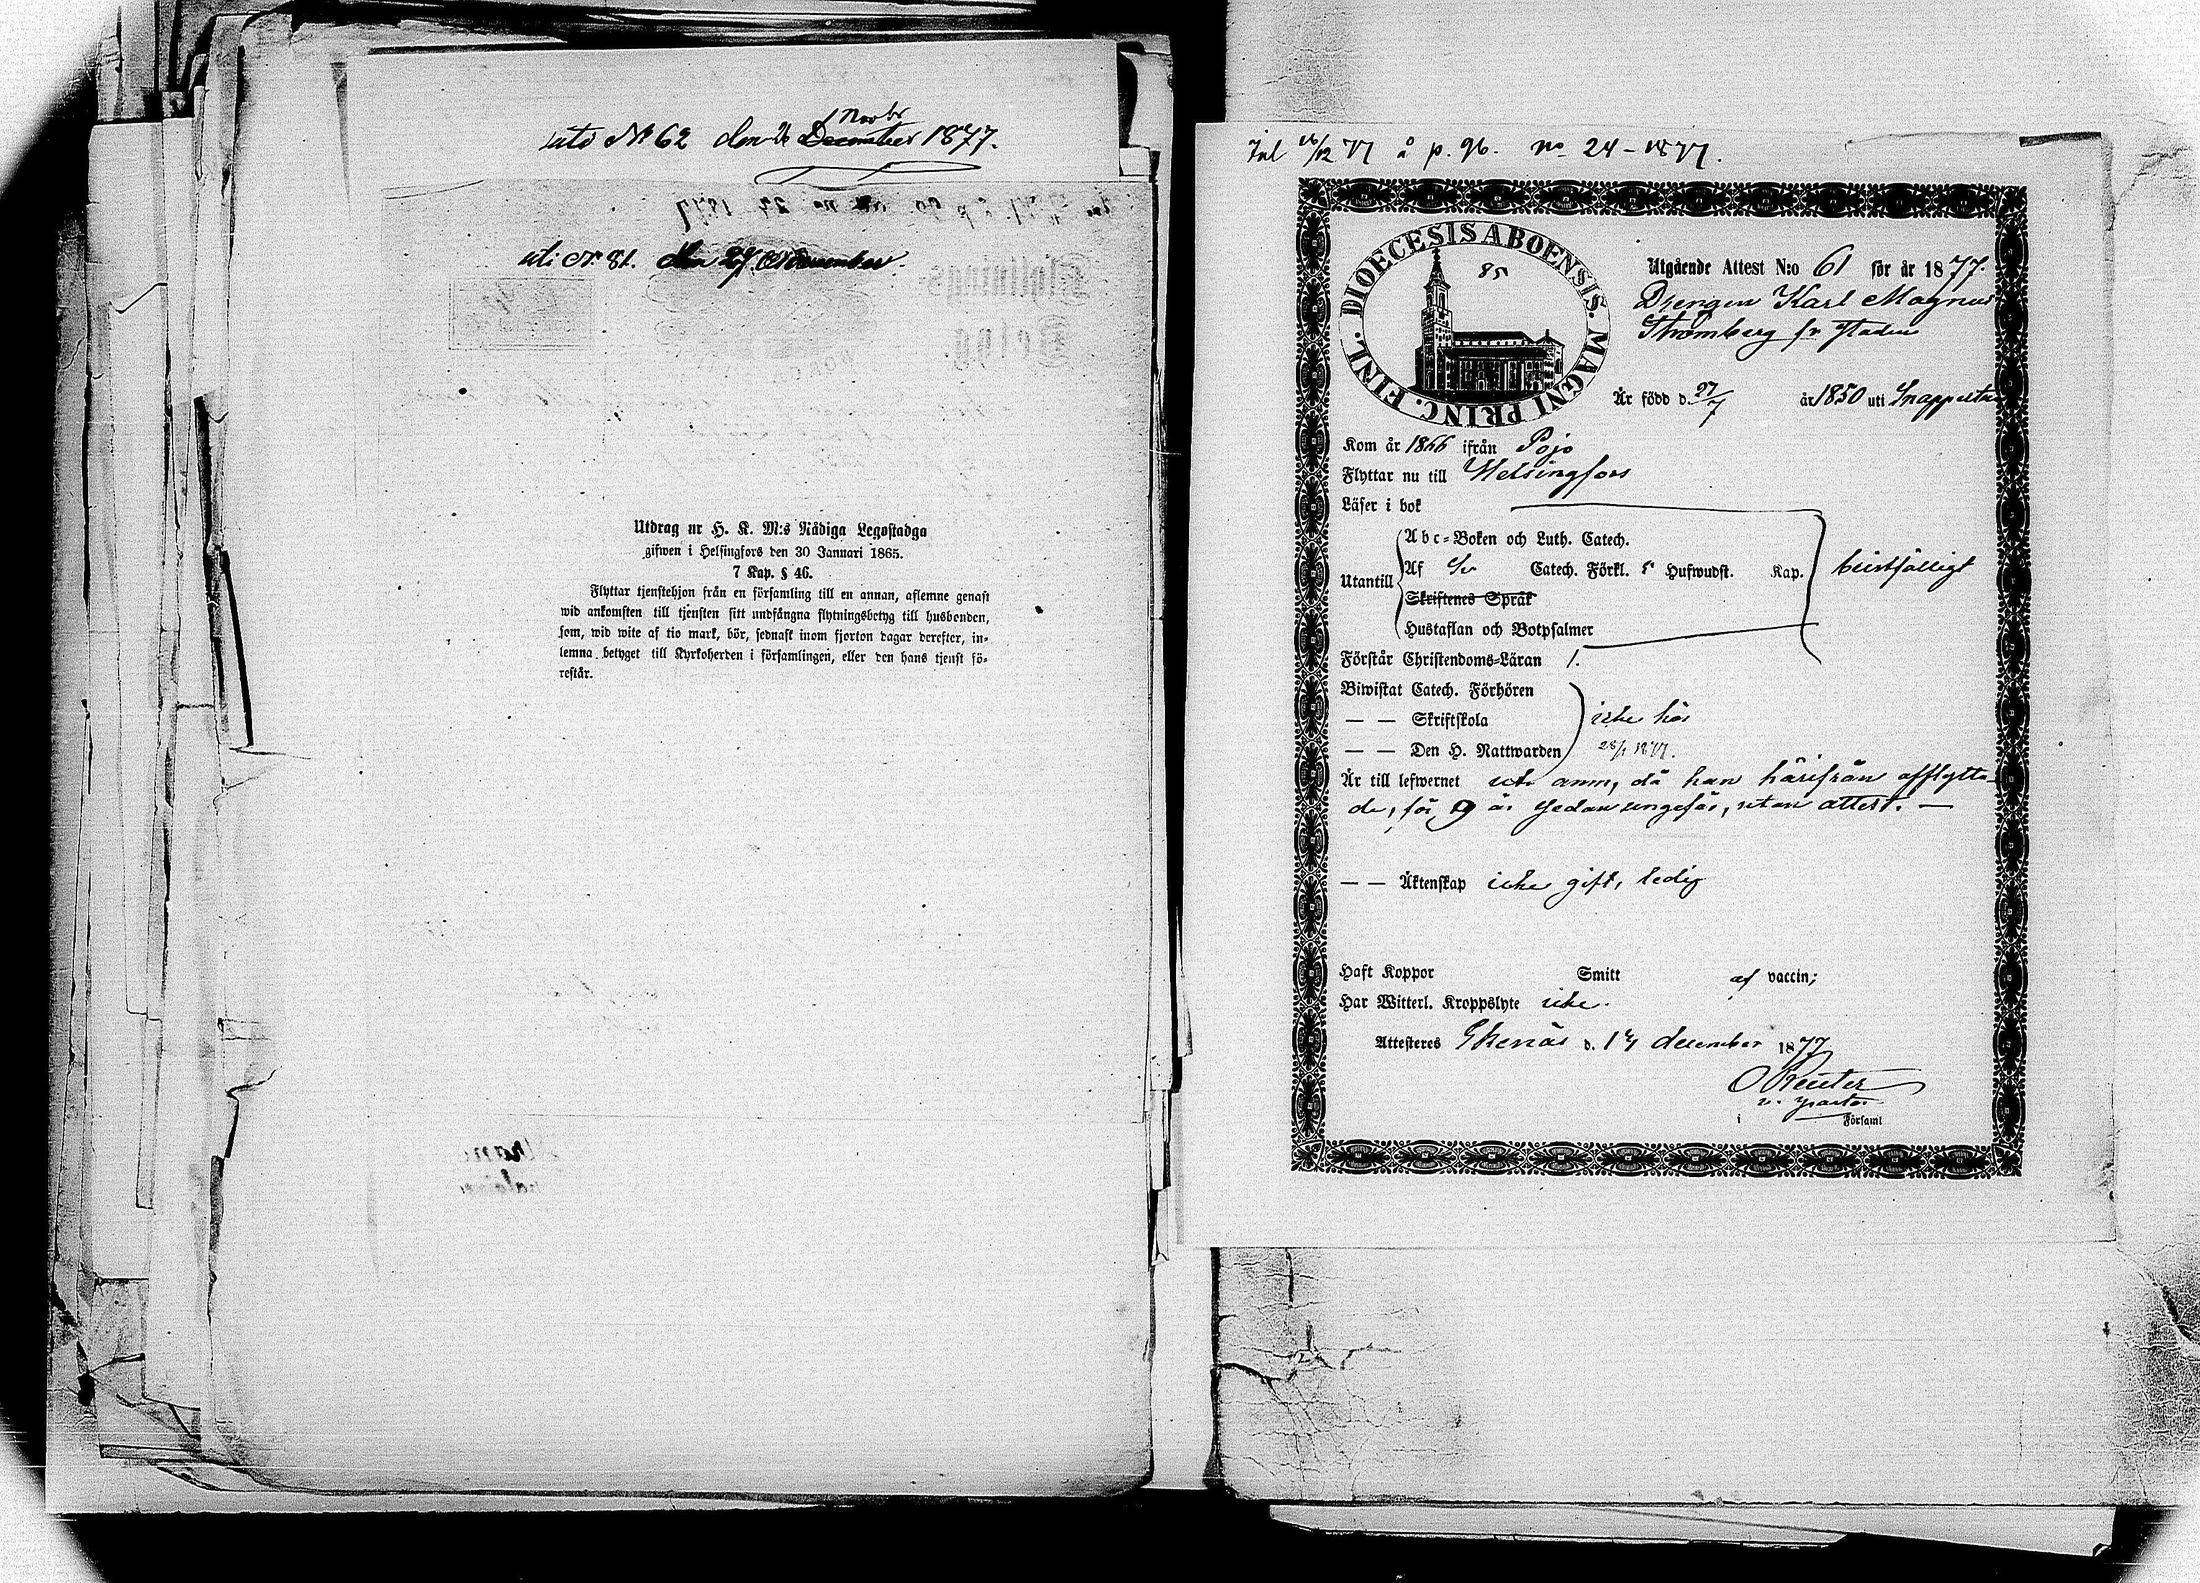 uti № 62 den 26 December Novbr 1877.
uti № 81. den 27. November.
Utdrag ur H. K. M:s Nådiga Legostadga
gifwen i Helsingfors den 30 Januari 1865.
7 Kap. § 46.
Flyttar tjenstehjon från en församling till en annan, aflemne genast
wid ankomsten till tjensten sitt undfångna flyttningsbetyg till husbonden,
som, wid wite af tio mark, bör, sednast inom fjorton dagar derefter, in-
lemna betyget till Kyrkoherden i församlingen, eller den hans tjenst fö-
restår.
Inl 18/12 77 å p. 96. no 24 - 1877.
DIOECESIS ABOENSIS. MAGNI PRINC. FINL.
85
Utgående Attest N:o 61 för år 1877.
Drengen Karl Magnus
Strömberg fr staden
Är född d. 27/7 år 1850 uti Snappertuna
Kom år 1866 ifrån Pojo
Flyttar nu till Helsingfors
Läser i bok
Abc-Boken och Luth. Catech.
Utantill Af Sv Catech. Förkl. 5 Hufwudst. Kap. bristfälligt
Skriftenes Språk
Hustaflan och Botpsalmer
Förstår Christendoms-Läran 1.
Biwistat Catech. Förhören
— — Skriftskola icke här
— — Den H. Nattwarden 28/1 1877.
Är till lefwernet icke anm, då han härifrån afflytta-
de, för 9 år sedan ungefär, utan attest. —
— — Äktenskap icke gift, ledig
Haft Koppor Smitt af vaccin;
Har Witterl. Kroppslyte icke.
Attesteres Ekenäs d. 14 december 1877
O Reuter
v. pastor
i Församl